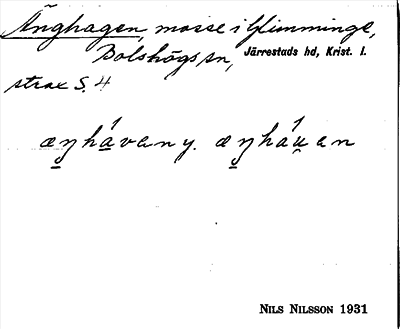 Änghagen, mosse i Glimminge,
Bolshögs sn, Järrestads hd, Krist. l.
strax S. 4
æŋhávany. æŋháu̯an
NILS NILSSON 1931